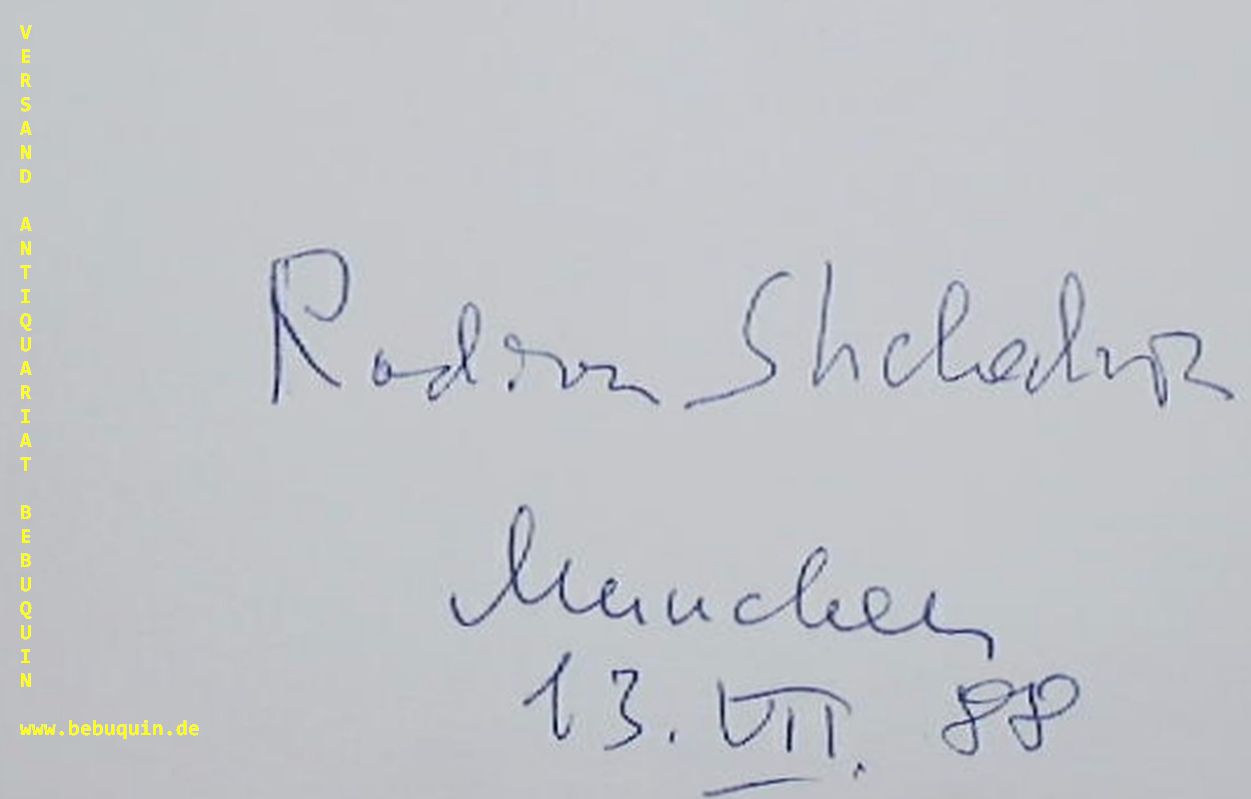 VERSAND ANTIQUARIAT BEBUQUIN
www.bebuquin.de
Rodion Shchedrin
München
13. VII. 88